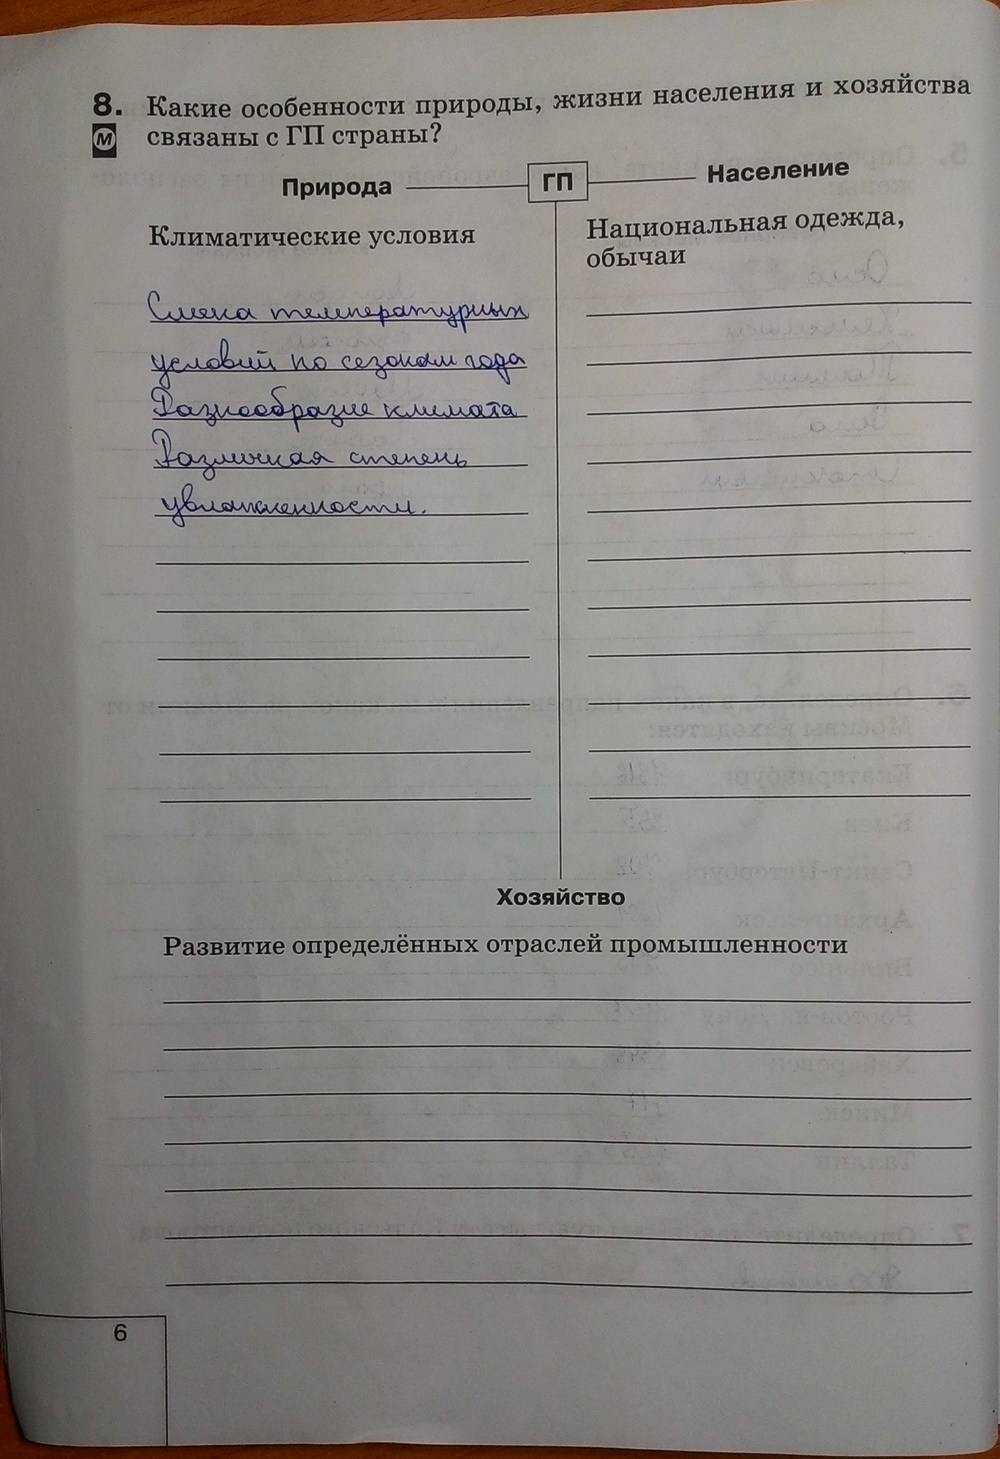 8. Какие особенности природы, жизни населения и хозяйства
М связаны с ГП страны?
Природа ГП Население
Климатические условия
Смена температурных
условий по сезонам года
Разнообразие климата
Различная степень
увлажненности.
Национальная одежда,
обычаи
Хозяйство
Развитие определённых отраслей промышленности
6